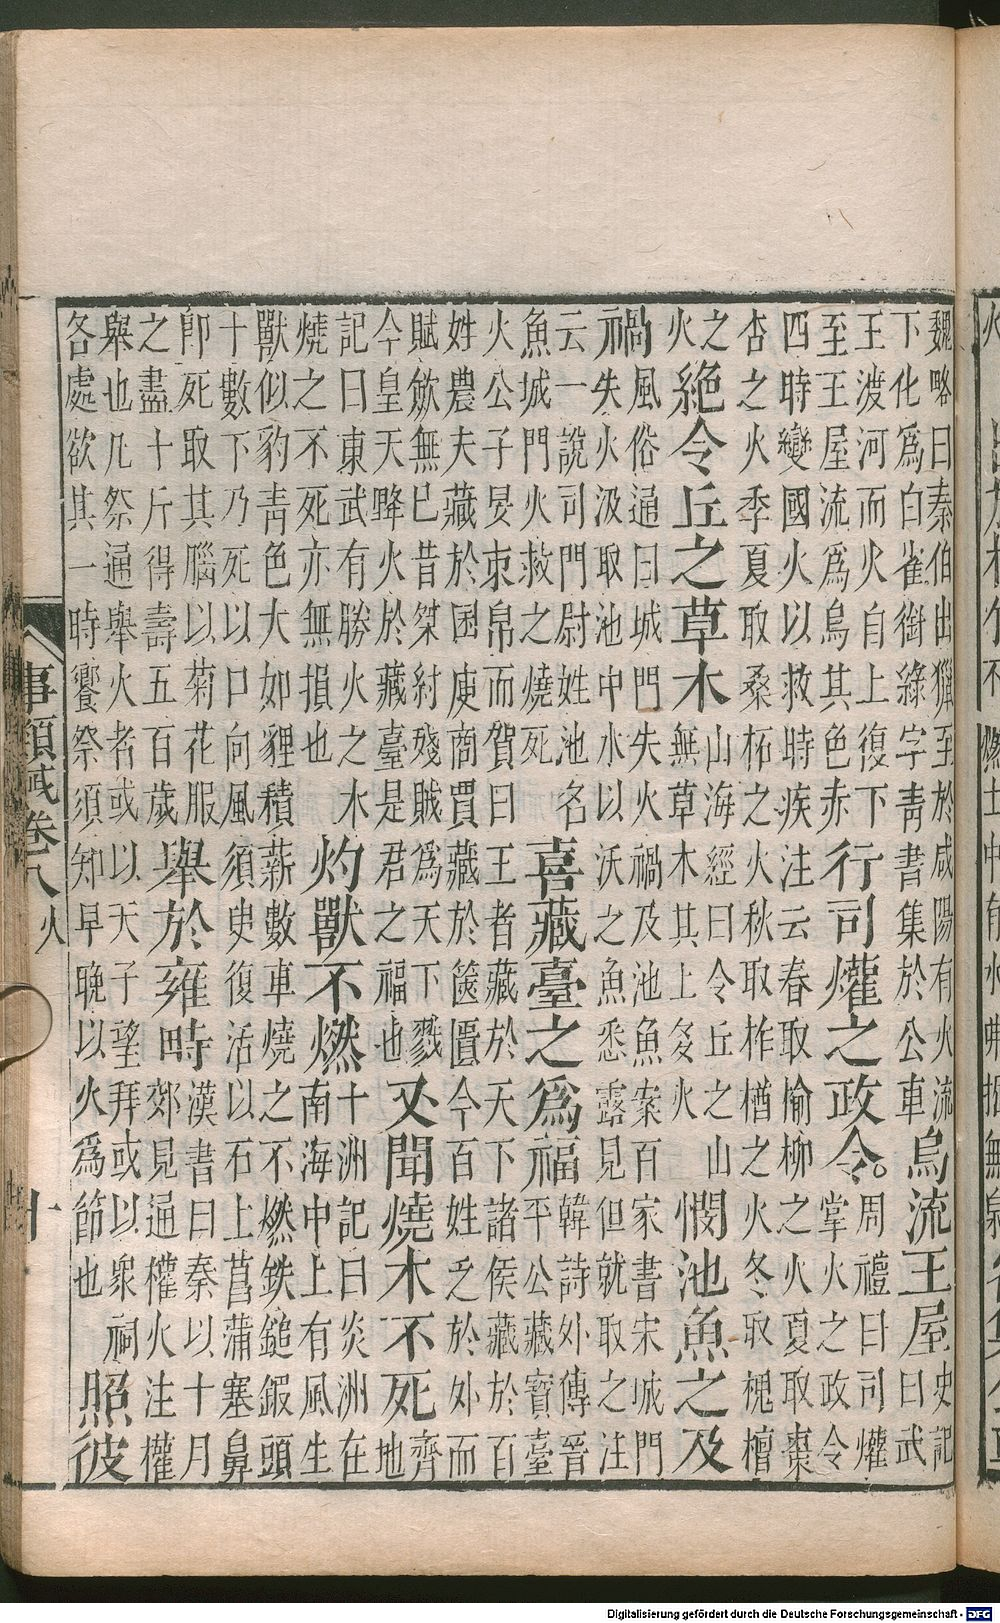 魏略曰秦伯出獵至於咸陽有火流
下化爲白雀銜綠字青書集於公車
烏流王屋
史記
曰武
王渡河而火自上復下
至王屋流爲烏其色赤
行司爟之政令。
周禮曰司爟
掌火之政令
四時變國火以救時疾注云春取榆柳之火夏取棗
杏之火季夏取桑柘之火秋取柞楢之火冬取槐檀
之
火
絕令丘之草木
山海經曰令丘之山
無草木其上多火
憫池魚之及
禍
風俗通曰城門失火禍及池魚案百家書宋城門
失火汲取池中水以沃之魚悉露見但就取之注
云一說司門尉姓池名
魚城門火救之燒死
喜藏臺之爲福
韓詩外傳晉
平公藏寶臺
火公子晏束帛而賀曰王者藏於天下諸侯藏於百
姓農夫藏於囷庾商賈藏於篋匱今百姓乏於外而
賦斂無已昔桀紂殘賊爲天下戮
今皇天降火於藏臺是君之福也
又聞燒木不死
齊
地
記曰東武有勝火之木
燒之不死亦無損也
灼獸不燃
十洲記曰炎洲在
南海中上有風生
獸似豹青色大如貍積薪數車燒之不燃鉄鎚鍛頭
十數下乃死以口向風須臾復活以石上菖蒲塞鼻
卽死取其腦以菊花服
之盡十斤得壽五百歲
舉於雍畤
漢書曰秦以十月
郊見通權火注權
舉也凡祭通舉火者或以天子望拜或以衆祠
各處欲其一時饗祭須知早晚以火爲節也
照彼
事類賦卷八 火 十
Digitalisierung gefördert durch die Deutsche Forschungsgemeinschaft - DFG